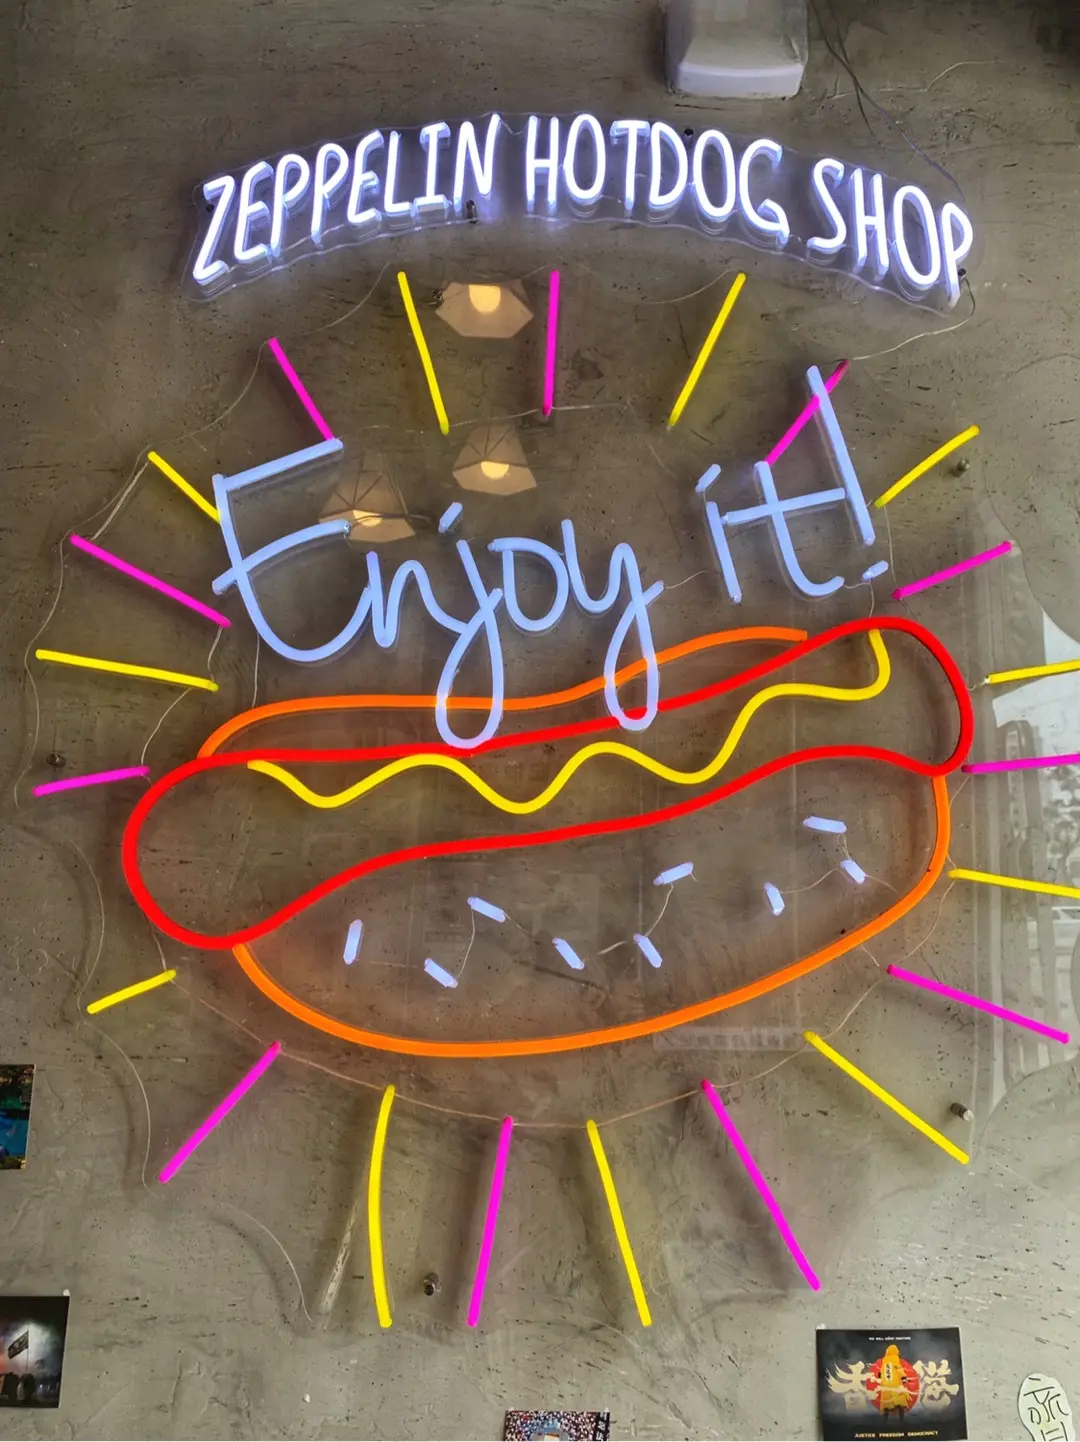 ZEPPELIN HOTDOG SHOP
Enjoy it!
WE WILL KEEP FIGHTING
香港
JUSTICE FREEDOM DEMOCRACY